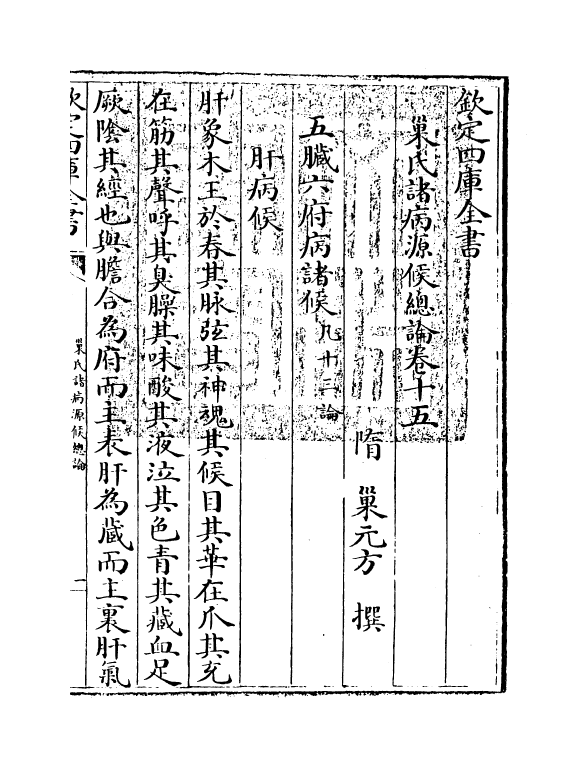 欽定四庫全書
巢氏諸病源候總論卷十五
隋 巢元方 撰
五臟六府病諸候凡十三論
肝病候
肝象木王於春其脉弦其神魂其候目其華在爪其充
在筋其聲呼其臭臊其味酸其液泣其色青其藏血足
厥陰其經也與膽合為府而主表肝為藏而主裏肝氣
欽定四庫全書
巢氏諸病源候總論
二